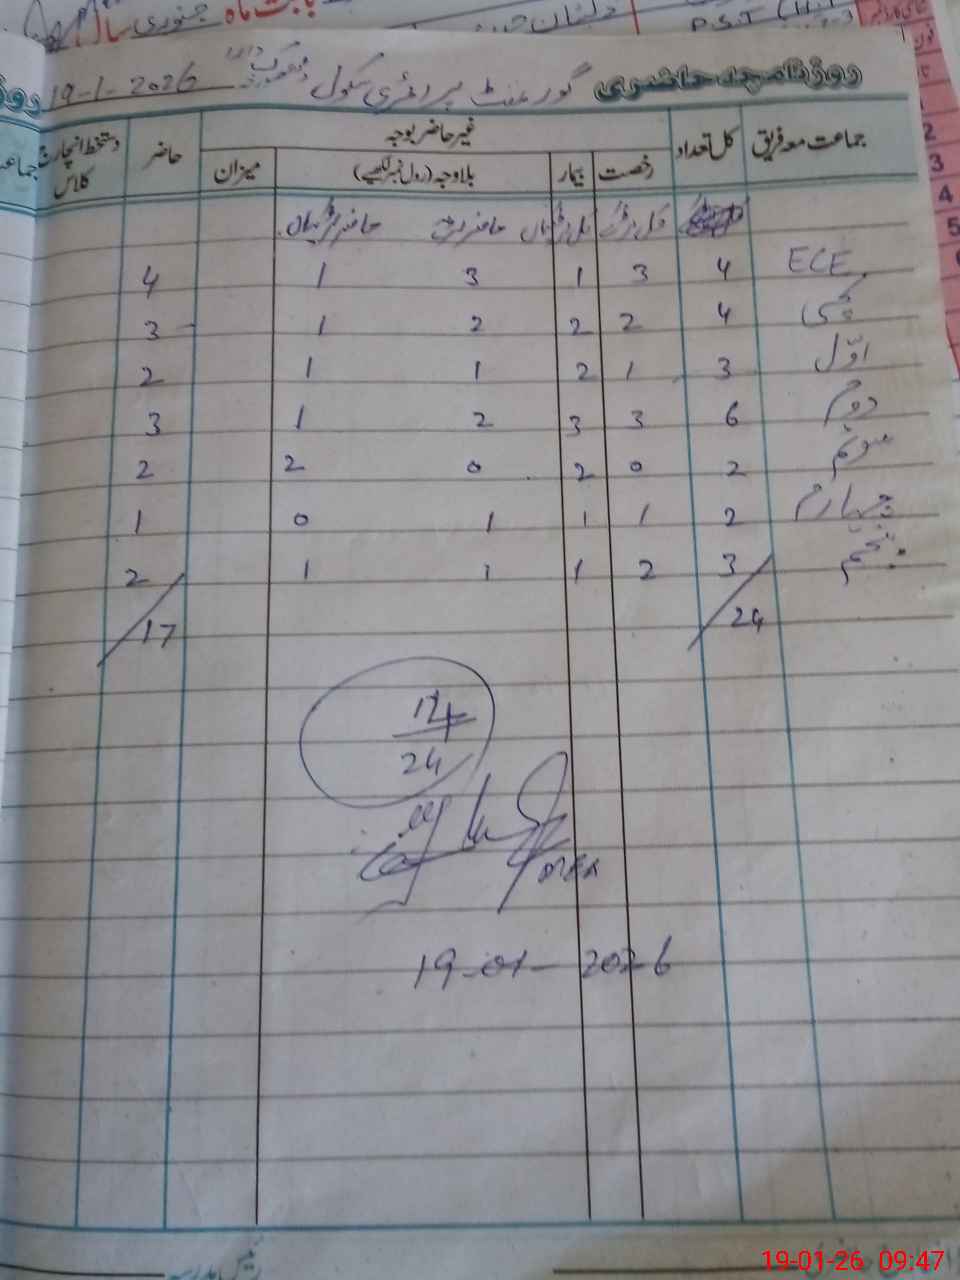 بابت ماہ جنوری سال
روزنامچہ حاضری گورنمنٹ پرائمری سکول 19-1-2026
جماعت معہ فریق کل تعداد غیر حاضر بوجہ حاضر دستخط انچارج کلاس
رخصت بیمار بلاوجہ (رول نمبر لکھیے) میزان
ECE 4 3 1 3 1 4
4 2 2 2 1 3
اوّل 3 1 2 1 1 2
دوم 6 3 3 2 1 3
سوئم 2 0 2 0 2 2
چہارم 2 1 1 1 0 1
پنجم 3 2 1 1 1 2
24 17
24
19-01-2026
رئیس مدرسہ
19-01-26 09:47